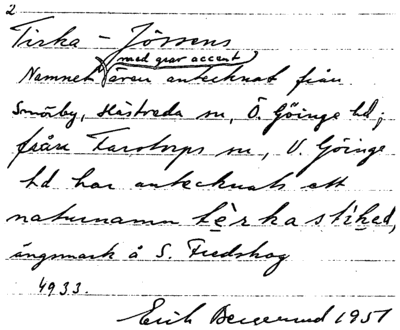 2
Tirka - Jörsens
(med grav accent)
Namnet även antecknat från
Smörby, Hästveda sn, Ö. Göinge hd;
från Farstorps sn, V. Göinge
hd har antecknats ett
naturnamn tèrka stiked,
ängsmark å S. Fredskog
4933.
Erik 1951